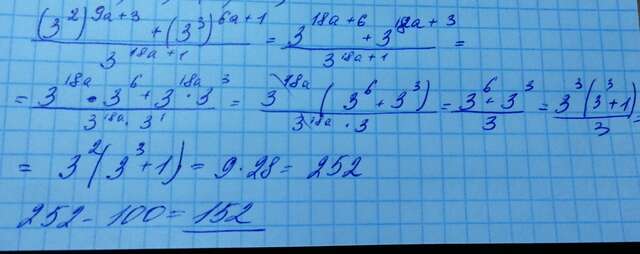 ((3²)^(9a+3) + (3³)^(6a+1)) / 3^(18a+1) = (3^(18a+6) + 3^(18a+3)) / 3^(18a+1) =
= (3^(18a) · 3^6 + 3^(18a) · 3^3) / (3^(18a) · 3^1) = (3^(18a) (3^6 + 3^3)) / (3^(18a) · 3) = (3^6 + 3^3) / 3 = (3^3 (3^3 + 1)) / 3 =
= 3² (3³ + 1) = 9 · 28 = 252
252 - 100 = 152